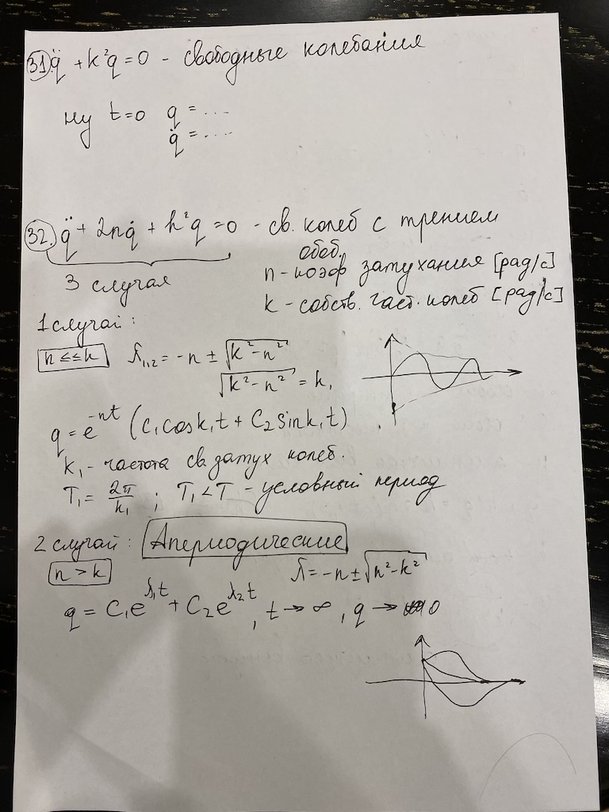 31. q̈ + k²q = 0 - свободные колебания
ну t=0 q = ....
q̇ = ....
32. q̈ + 2nq̇ + k²q = 0 - св. колеб с трением
обоб.
3 случая
n - коэф затухания [рад/с]
k - собств. част. колеб [рад/с]
1 случай:
n ≤≤ k λ₁,₂ = -n ± √(k²-n²)
√(k²-n²) = k₁
q = e^(-nt) (C₁cosk₁t + C₂sink₁t)
k₁ - частота св. затух колеб.
T₁ = 2π/k₁ ; T₁ < T - условный период
2 случай: Апериодические
n > k λ = -n ± √(n²-k²)
q = C₁e^(λ₁t) + C₂e^(λ₂t), t → ∞, q → 0